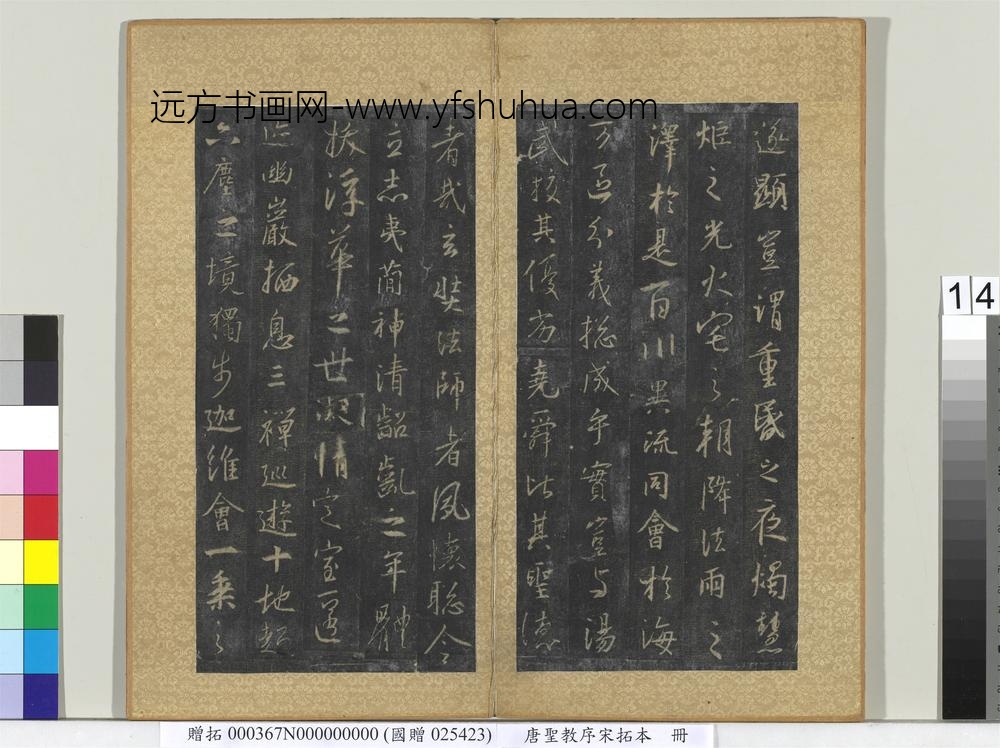 远方书画网-www.yfshuhua.com
遂顯豈謂重昬之夜燭慧
炬之光火宅之朝降法雨之
澤於是百川異流同會於海
万區分義揔成乎實豈与湯
武校其優劣堯舜比其聖德
者哉玄奘法師者夙懷聡令
立志夷簡神清齠齔之年體
拔浮華之世凝情定室匿
迹幽巖栖息三禪巡遊十地超
六塵之境獨步迦維會一乘之
14
贈拓 000367N000000000 (國贈 025423)
唐聖教序宋拓本　冊